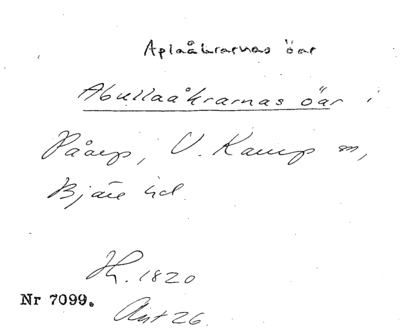 Aplaåkrarnas öar
Abullaåkrarnas öar i
Påarp, V. Karup sn,
Bjäre hd.
Hh. 1820
Nr 7099.
Akt 26.